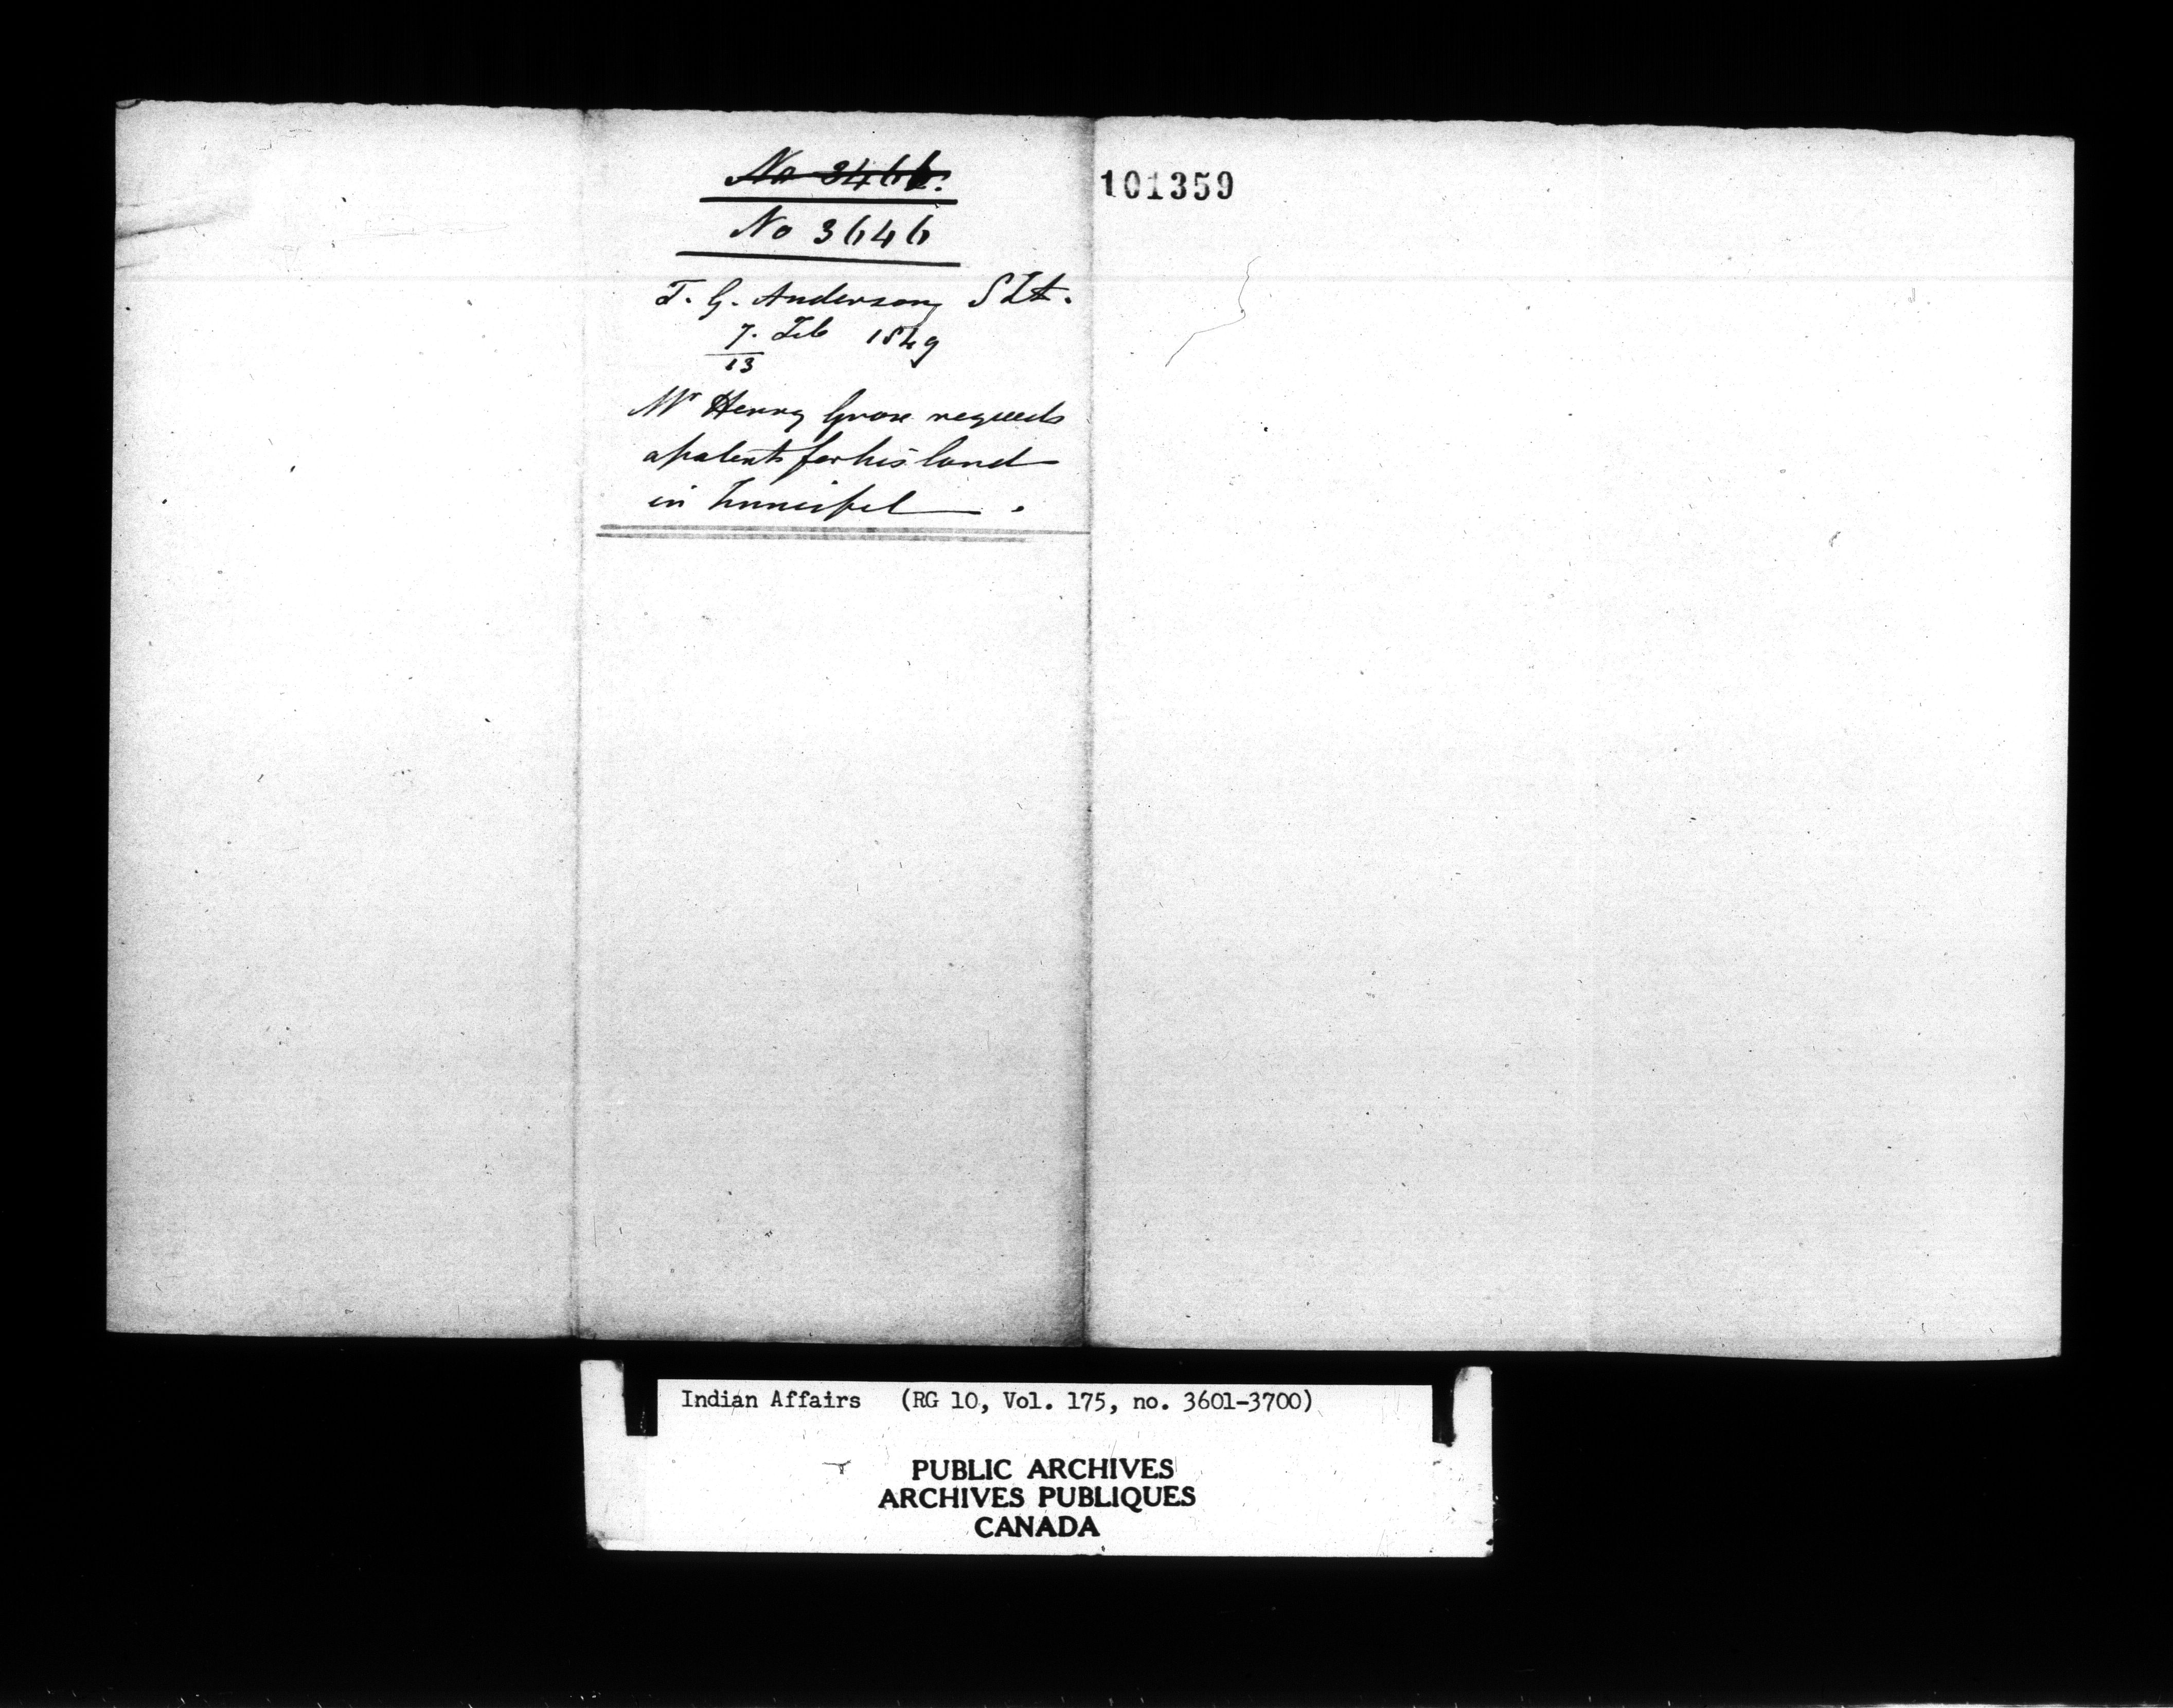 No 3466.
No 3646
101359
T. G. Anderson
7. Feb 1849
13
Mr Henry Grose requests
a patent for his land
in Innisfil
Indian Affairs (RG 10, Vol. 175, no. 3601-3700)
PUBLIC ARCHIVES
ARCHIVES PUBLIQUES
CANADA